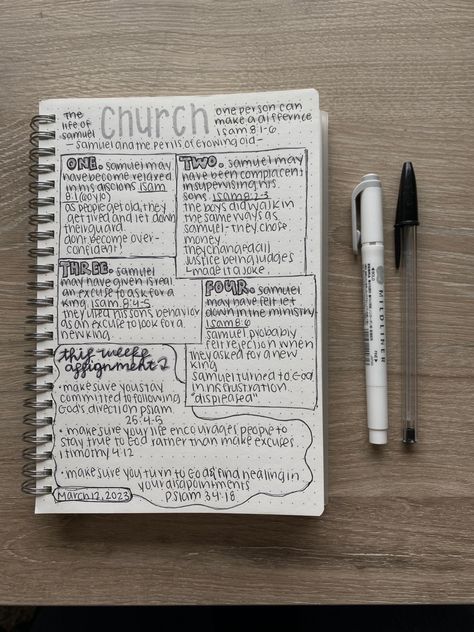 The
life of
samuel
church
one person can
make a difference
1 sam 8:1-6
- samuel and the perils of growing old -
ONE. samuel may
have become relaxed
in his
8:1
as people get old, they
get tired and let down
their guard.
dont become over-
confident!
TWO. samuel may
have been complacent
in supervising his
sons. 1 sam 8:2-3
the boys did walk in
the same ways as
samuel - they chose
money.
they changed all
justice being judges
- made it a joke.
THREE. samuel
may have given israel
an excuse to ask for a
king. 1 sam 8:4-5
they used his sons behavior
as an excuse to look for a
new king.
FOUR. samuel
may have felt let
down in the ministry
1 sam 8:6
samuel probably
felt rejection when
they asked for a new
king
samuel turned to God
in his frustration.
"displeased"
this weeks
assignment
· make sure you stay
committed to following
God's direction psalm
25:4-5
· make sure your life encourages people to
stay true to God rather than make excuses
1 timothy 4:12
· make sure you turn to God & find healing in
your disappointments
psalm 34:18
March 12, 2023
MILDLINER